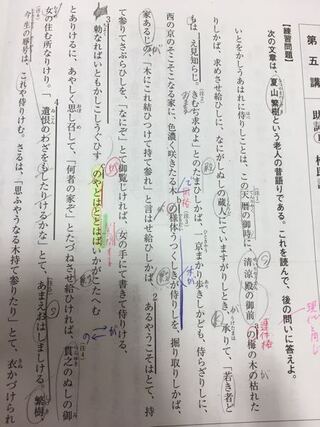 第五講
【練習問題】
次の文章は、夏山繁樹という老人の昔語りである。これを読んで、後の問いに答えよ。
いとをかしうあはれに侍りしことは、この天暦の御時に、清涼殿の御前の梅の木の枯れた
りしかば、求めさせ給ひしに、なにがしぬしの蔵人にていますがりしとき、承りて、「若き者ど
もは、え見知らじ。きむぢ求めよ」とのたまひしかば、一京まかり歩きしかども、侍らざりしに、
西の京のそこそこなる家に、色濃く咲きたる木の様体うつくしきが侍りしを、掘り取りしかば、
家あるじの、「木にこれ結ひつけて持て参れ」と言はせ給ひしかば、2あるやうこそはとて、持
て参りてさぶらひしを、「なにぞ」とて御覧じければ、女の手にて書きて侍りける、
3勅なればいともかしこしうぐひすのやどはととはばいかがこたへむ
とありけるに、あやしく思し召して、「何者の家ぞ」とたづねさせ給ひければ、貫之のぬしの御
女の住む所なりけり。4「遺恨のわざをもしたりけるかな」とて、あまえおはしましける。繁樹、
今生の辱号は、これや侍りけむ。さるは、「思ふやうなる木持て参りたり」とて、衣かづけられ